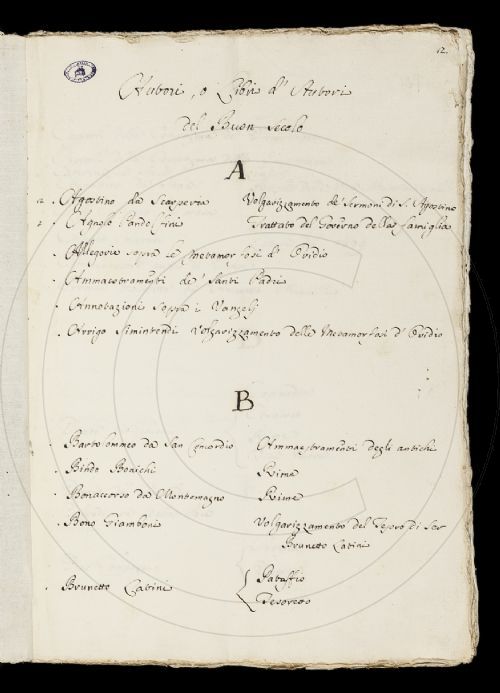 12.
Autori, o Libri d' Autori
del Buon secolo
A
Agostino da Scarperia Volgarizzamento de' Sermoni di S. Agostino
Agnolo Pandolfini Trattato del Governo della famiglia
Allegorie sopra le Metamorfosi d' Ovidio
Ammaestramenti de' Santi Padri
Annotazioni sopra i Vangelj
Arrigo Simintendi Volgarizzamento delle Metamorfosi d' Ovidio
B
Bartolommeo da San Concordio Ammaestramenti degli antichi
Bindo Bonichi Rime
Bonaccorso da Montemagno Rime
Bono Giamboni Volgarizzamento del Tesoro di Ser
Brunetto Latini
Brunetto Latini { Pataffio
Tesoretto